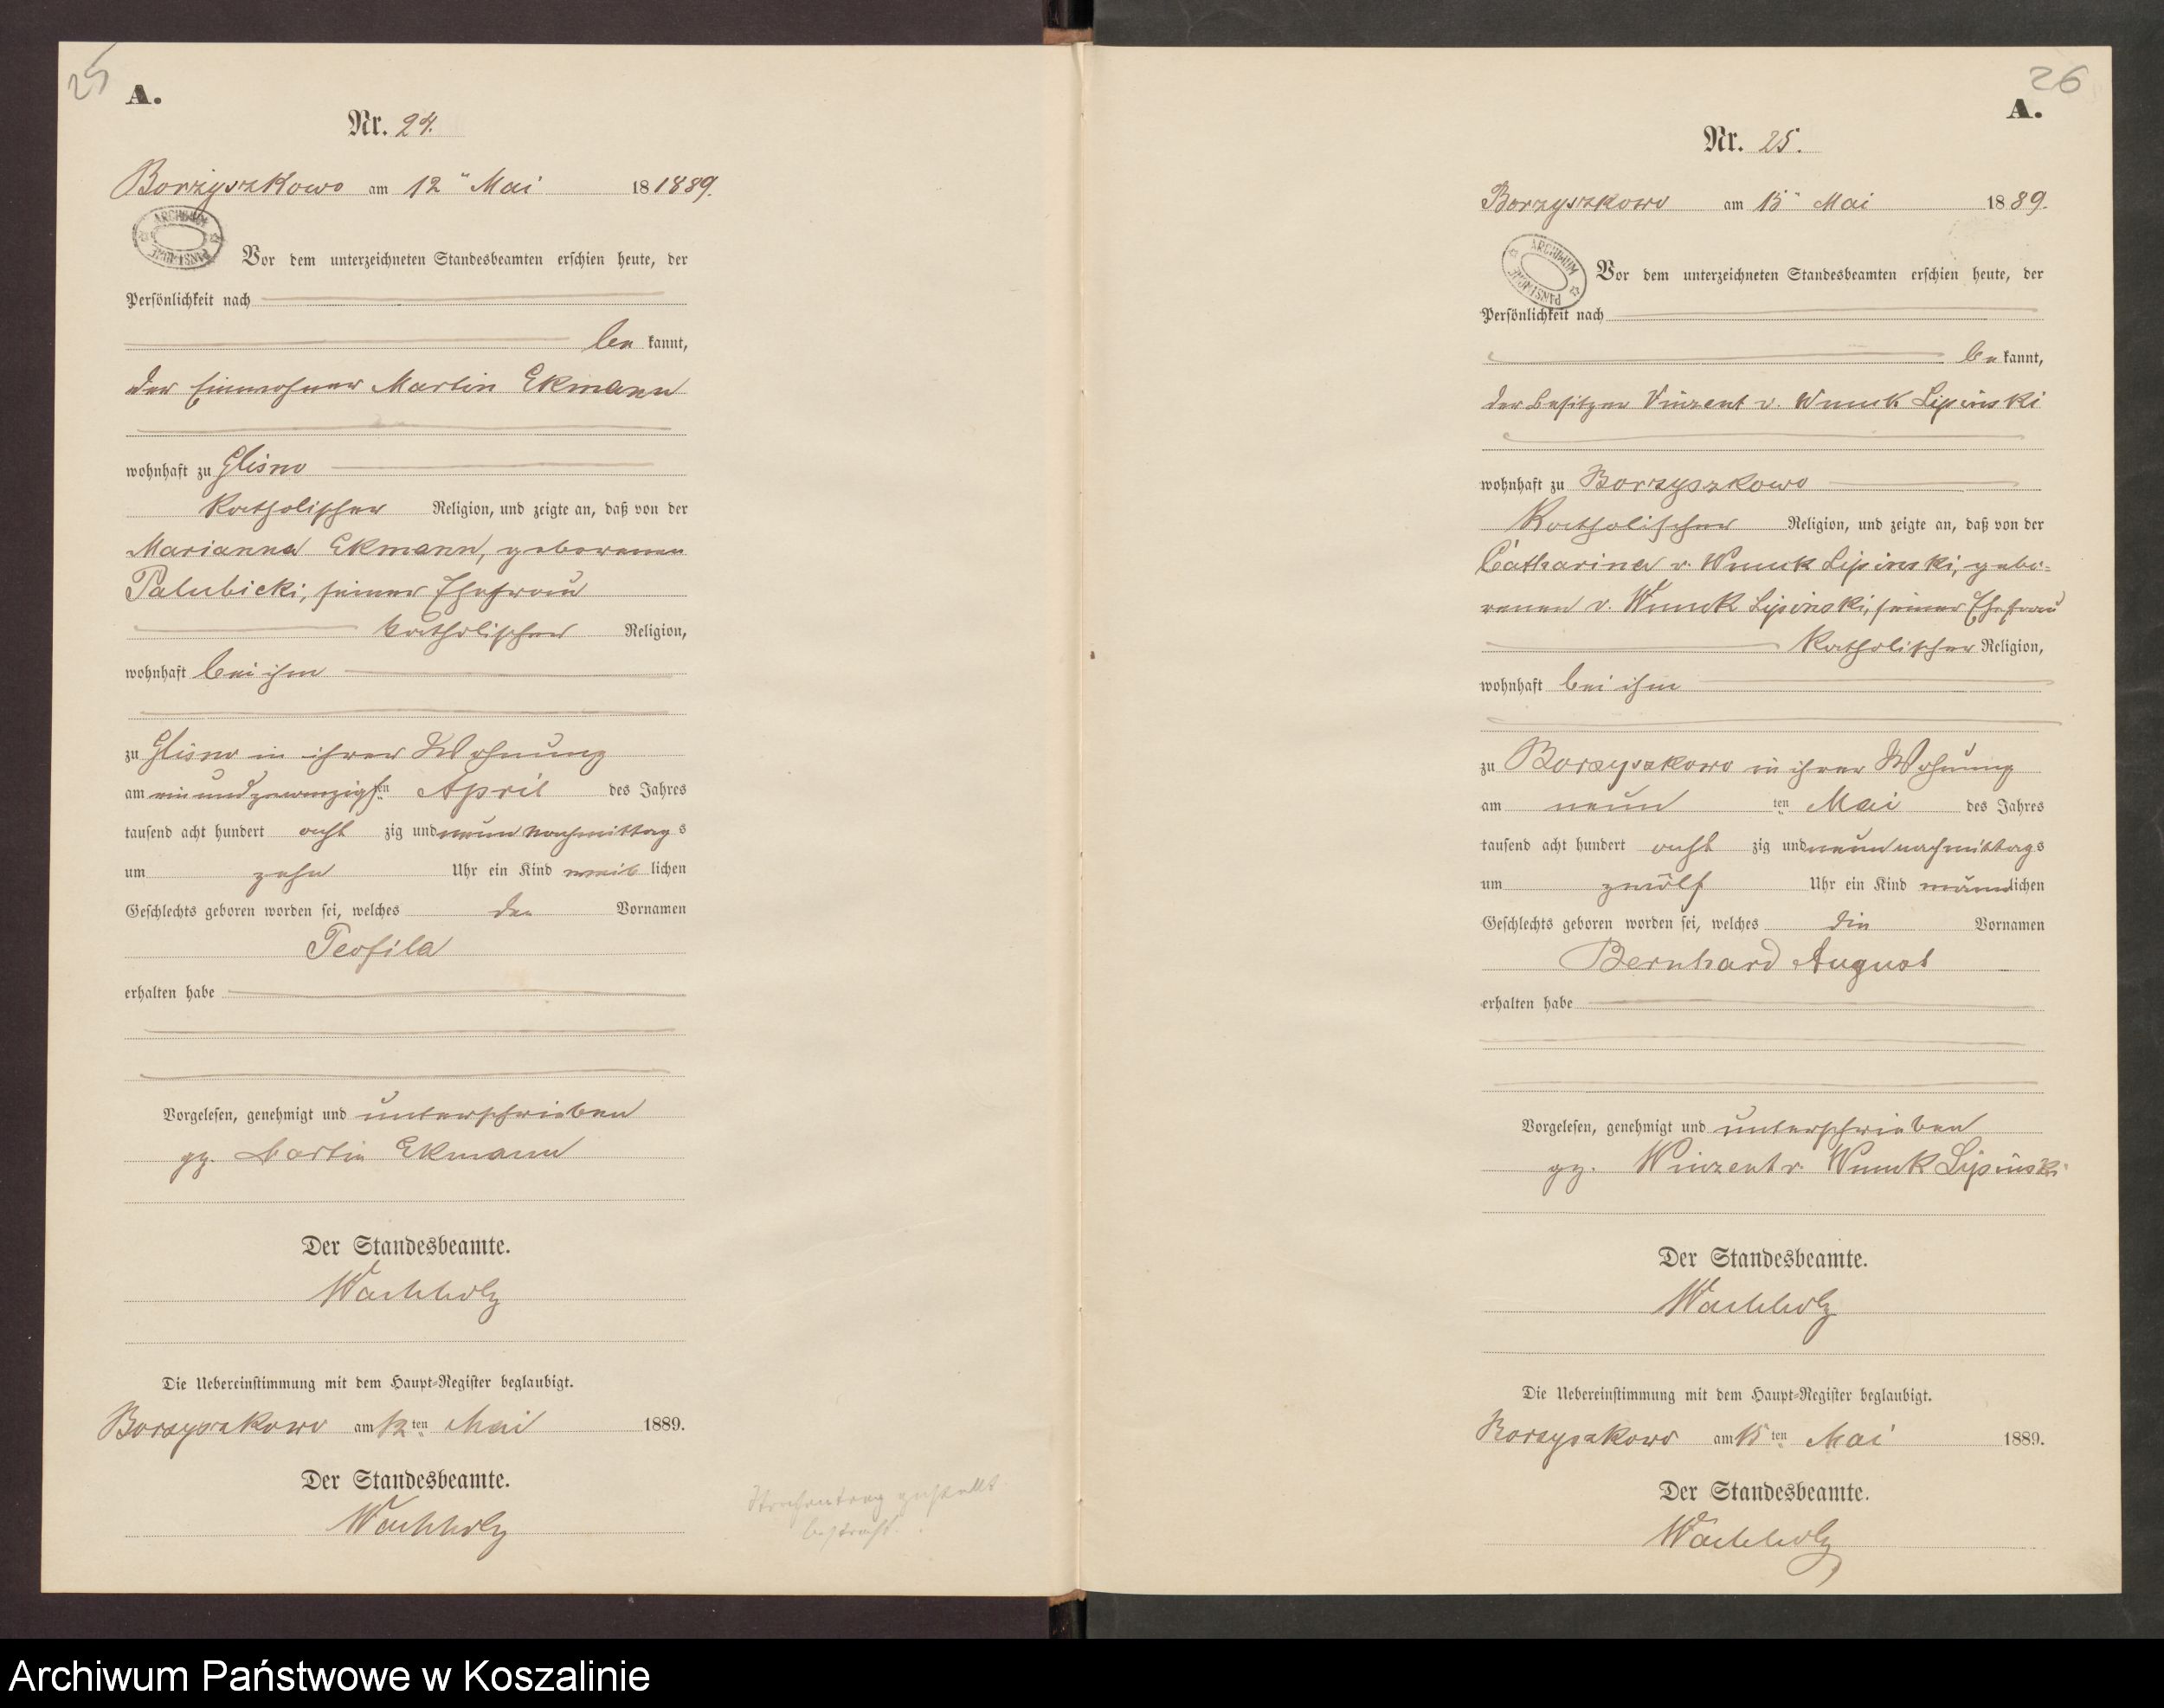 25
A.
Nr. 24.
Borzyszkowo am 12ⁿ Mai 18 1889.
ARCHIWUM PAŃSTWOWE
Vor dem unterzeichneten Standesbeamten erschien heute, der
Persönlichkeit nach
be kannt,
der Einwohner Martin Ekmann
wohnhaft zu Glisno
katholischer Religion, und zeigte an, daß von der
Marianna Ekmann, geborenen
Palubicki, seiner Ehefrau
katholischer Religion,
wohnhaft bei ihm
zu Glisno in ihrer Wohnung
am ein und zwanzigsten April des Jahres
tausend acht hundert acht zig und neun nachmittags
um zehn Uhr ein Kind weib lichen
Geschlechts geboren worden sei, welches den Vornamen
Teofila
erhalten habe
Vorgelesen, genehmigt und unterschrieben
gz. Martin Ekmann
Der Standesbeamte.
Wachholz
Die Uebereinstimmung mit dem Haupt-Register beglaubigt.
Borzyszkowo am 12 ten Mai 1889.
Der Standesbeamte.
Wachholz
bestraft.
26
A.
Nr. 25.
Borzyszkowo am 15ⁿ Mai 18 89.
ARCHIWUM PAŃSTWOWE
Vor dem unterzeichneten Standesbeamten erschien heute, der
Persönlichkeit nach
be kannt,
der Besitzer Vinzent v. Wnuk Lipinski
wohnhaft zu Borzyszkowo
katholischer Religion, und zeigte an, daß von der
Catharina v. Wnuk Lipinski, gebo-
renen v. Wnuk Lipinski, seiner Ehefrau
katholischer Religion,
wohnhaft bei ihm
zu Borzyszkowo in ihrer Wohnung
am neun ten Mai des Jahres
tausend acht hundert acht zig und neun nachmittags
um zwölf Uhr ein Kind männlichen
Geschlechts geboren worden sei, welches die Vornamen
Bernhard August
erhalten habe
Vorgelesen, genehmigt und unterschrieben
gz. Winzent v. Wnuk Lipinski
Der Standesbeamte.
Wachholz
Die Uebereinstimmung mit dem Haupt-Register beglaubigt.
Borzyszkowo am 15 ten Mai 1889.
Der Standesbeamte.
Wachholz
Archiwum Państwowe w Koszalinie